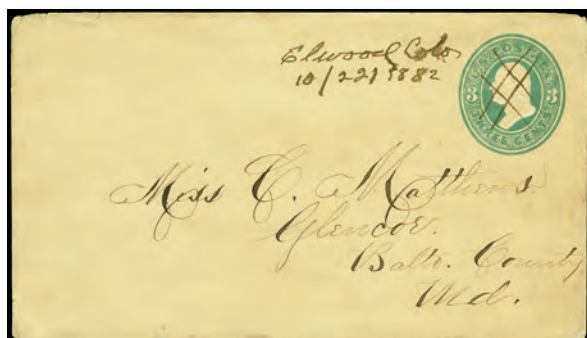 Elwood Colo
10/22 1882
U.S. POSTAGE
3 3
THREE CENTS
Miss C. Matthews.
Glencoe.
Balto. County
Md.